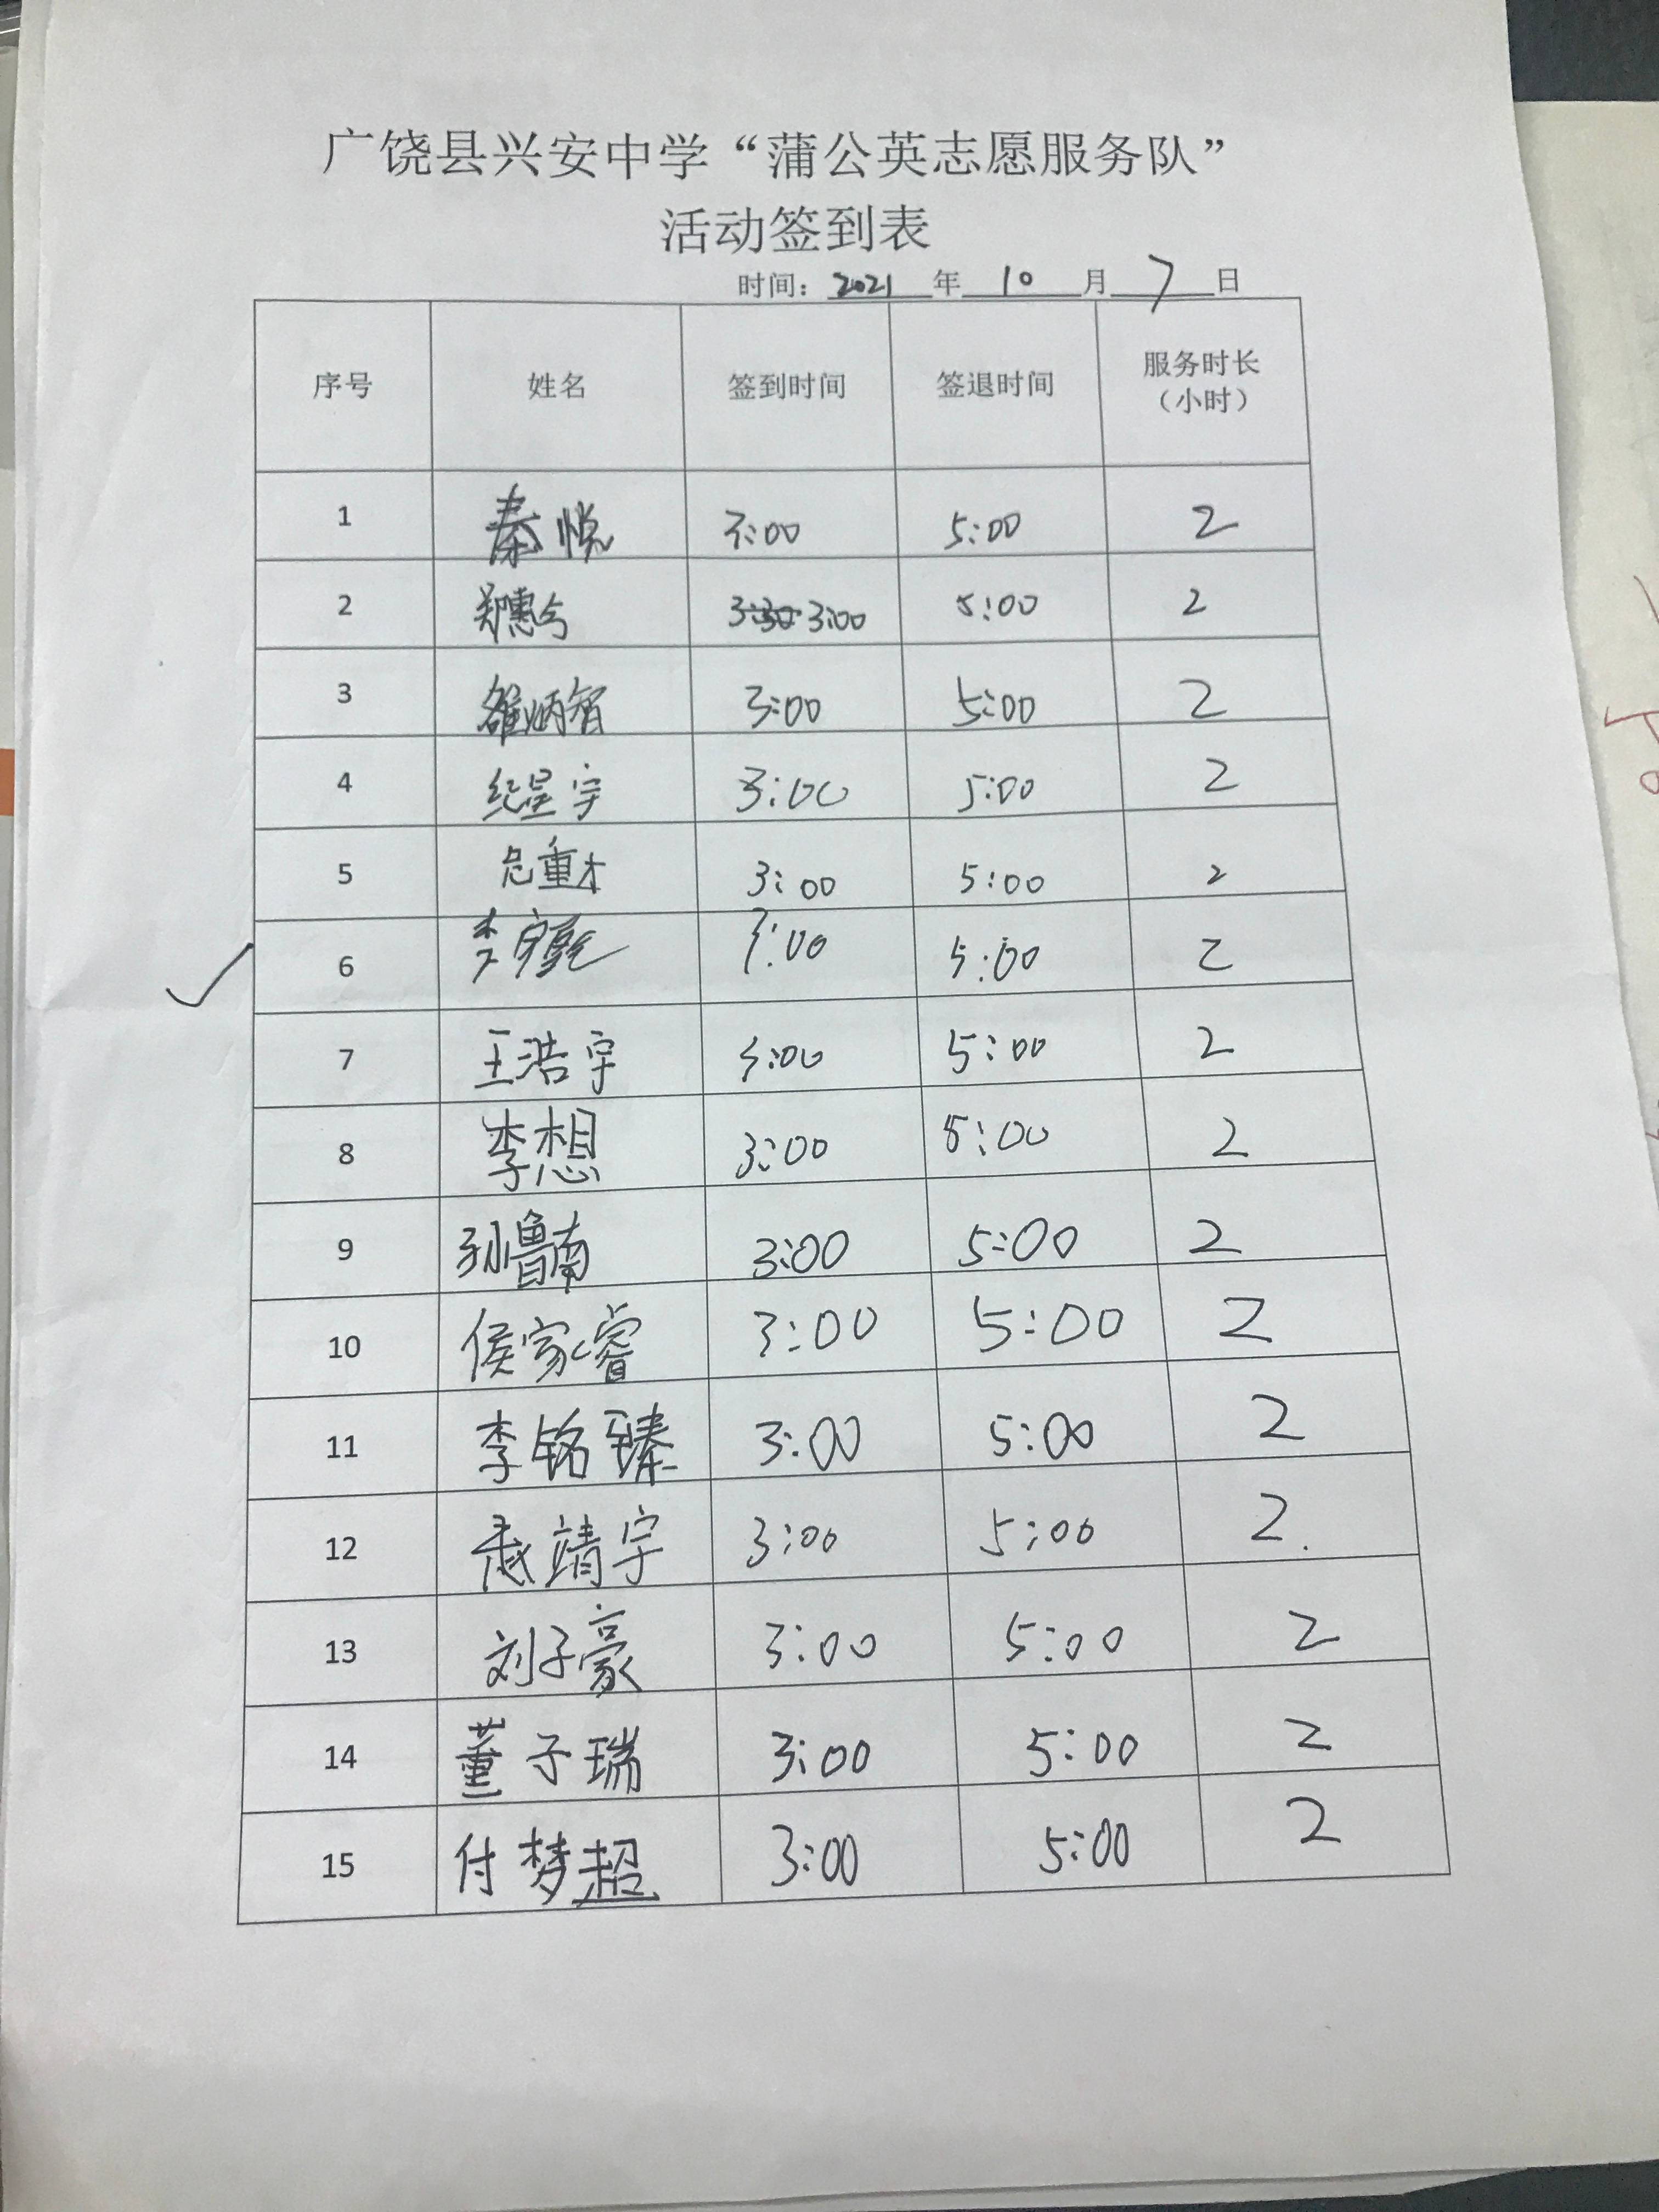 广饶县兴安中学“蒲公英志愿服务队”
活动签到表
时间：2021年10月7日
序号 姓名 签到时间 签退时间 服务时长（小时）
1 秦悦 3:00 5:00 2
2 郑惠兮 3:30 3:00 5:00 2
3 炳智 3:00 5:00 2
4 纪呈宇 3:00 5:00 2
5 3:00 5:00 2
6 李 3:00 5:00 2
7 王浩宇 3:00 5:00 2
8 李想 3:00 5:00 2
9 孙鲁南 3:00 5:00 2
10 侯家睿 3:00 5:00 2
11 李铭臻 3:00 5:00 2
12 靖宇 3:00 5:00 2.
13 刘子豪 3:00 5:00 2
14 董子瑞 3:00 5:00 2
15 付梦超 3:00 5:00 2